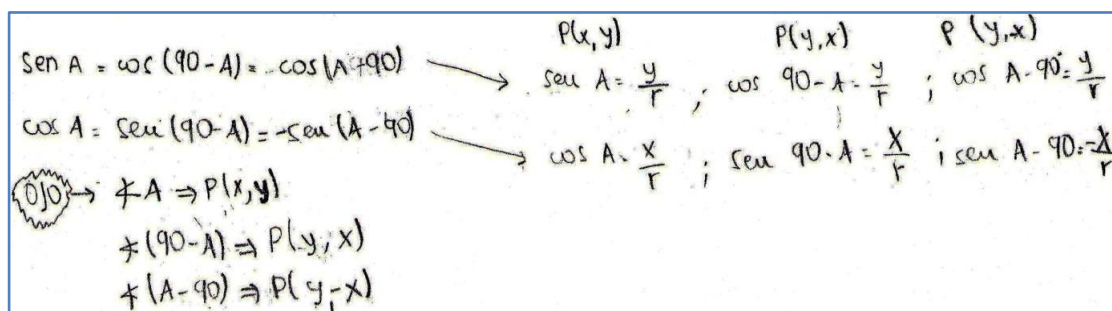 P(x,y) P(y,x) P(y,-x)
sen A = cos (90-A) = -cos(A+90) → sen A = y/r ; cos 90-A = y/r ; cos A-90° = y/r
cos A = sen (90-A) = -sen (A-90) → cos A = x/r ; sen 90-A = x/r ; sen A-90 = -x/r
OJO → ∡A ⇒ P(x,y)
∡(90-A) ⇒ P(y,x)
∡(A-90) ⇒ P(y,-x)